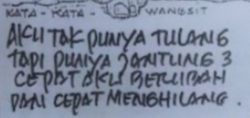 KATA - KATA - WANGSIT
AKU TAK PUNYA TULANG
TAPI PUNYA JANTUNG 3
CEPAT AKU BERUBAH
DAN CEPAT MENGHILANG.